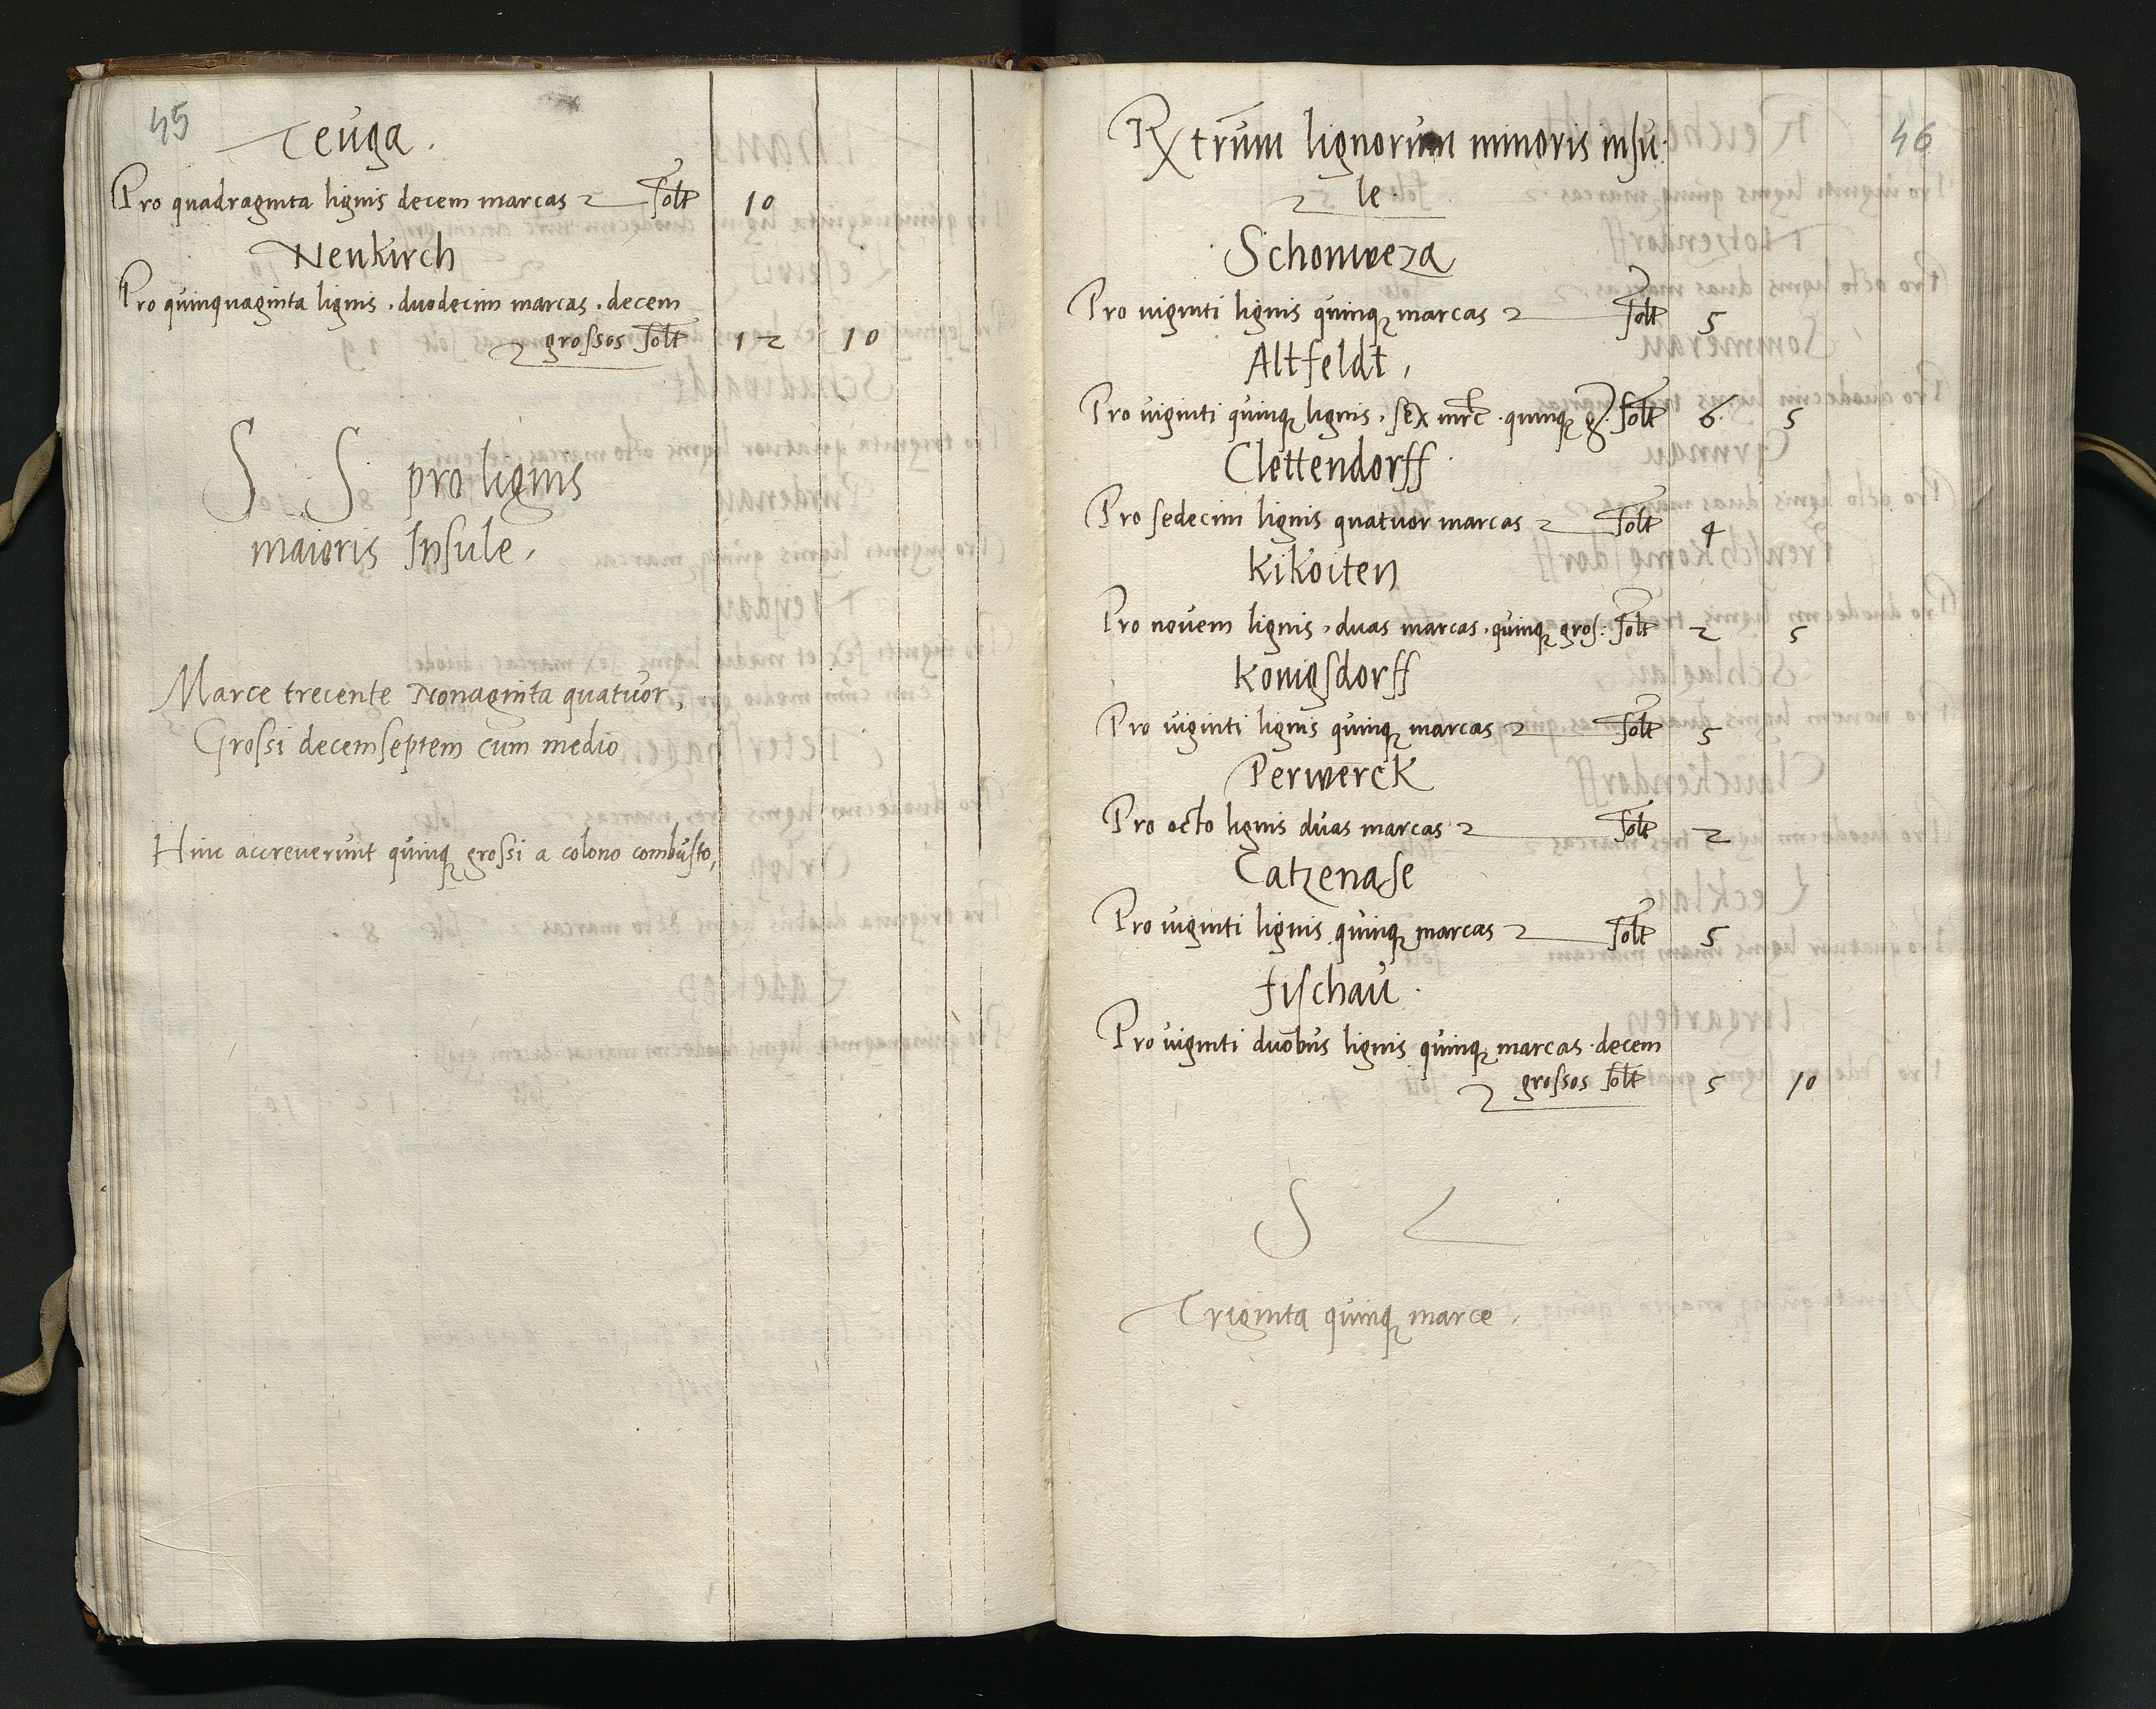 45
Teuga.
Pro quadraginta lignis decem marcas solt 10
Neukirch
Pro quinquaginta lignis. duodecim marcas. decem
grossos solt 12 10
S S pro lignis
maioris Insule.
Marce trecente Nonaginta quatuor,
Grossi decemseptem cum medio
Hinc accreverunt quinq grossi a colono combusto,
46
Rx trum lignorum minoris insu:
le.
Schonweza
Pro viginti lignis quinq marcas solt 5
Altfeldt,
Pro viginti quinq lignis. sex mrc. quinq g. solt 6. 5
Clettendorff.
Pro sedecim lignis quatuor marcas solt 4
Kikoiten
Pro novem lignis. duas marcas. quinq gros: solt 2 5
Konigsdorff
Pro viginti lignis quinq marcas solt 5
Perwerck
Pro octo lignis duas marcas solt 2
Catzenase
Pro viginti lignis quinq marcas solt 5
Fischau.
Pro viginti duobus lignis quinq marcas. decem
grossos solt 5 10
S
Triginta quinq marce.